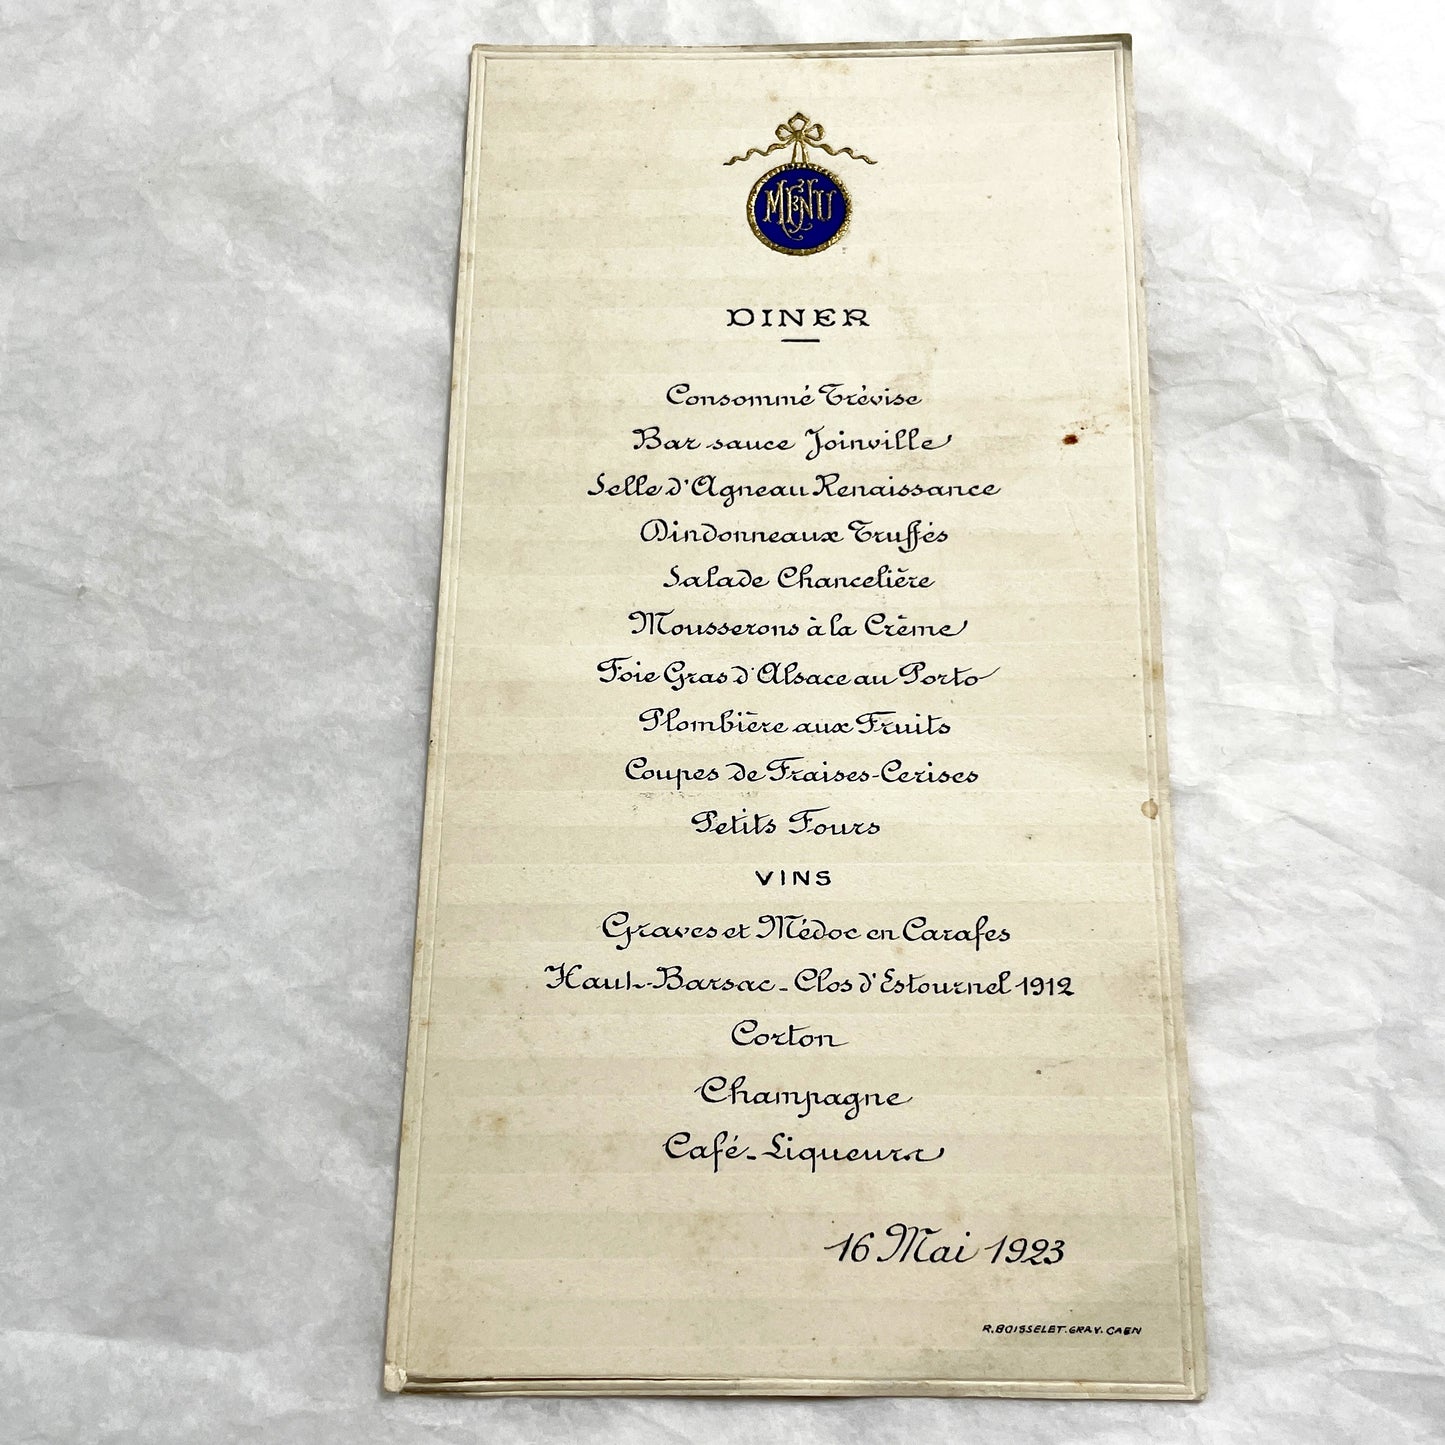 MENU
DINER
Consommé Trévise
Bar sauce Joinville
Selle d'Agneau Renaissance
Dindonneaux Truffés
Salade Chancelière
Mousserons à la Crème
Foie Gras d'Alsace au Porto
Plombière aux Fruits
Coupes de Fraises-Cerises
Petits Fours
VINS
Graves et Médoc en Carafes
Haut-Barsac - Clos d'Estournel 1912
Corton
Champagne
Café - Liqueurs
16 Mai 1923
R. BOISSELET. GRAV. CAEN